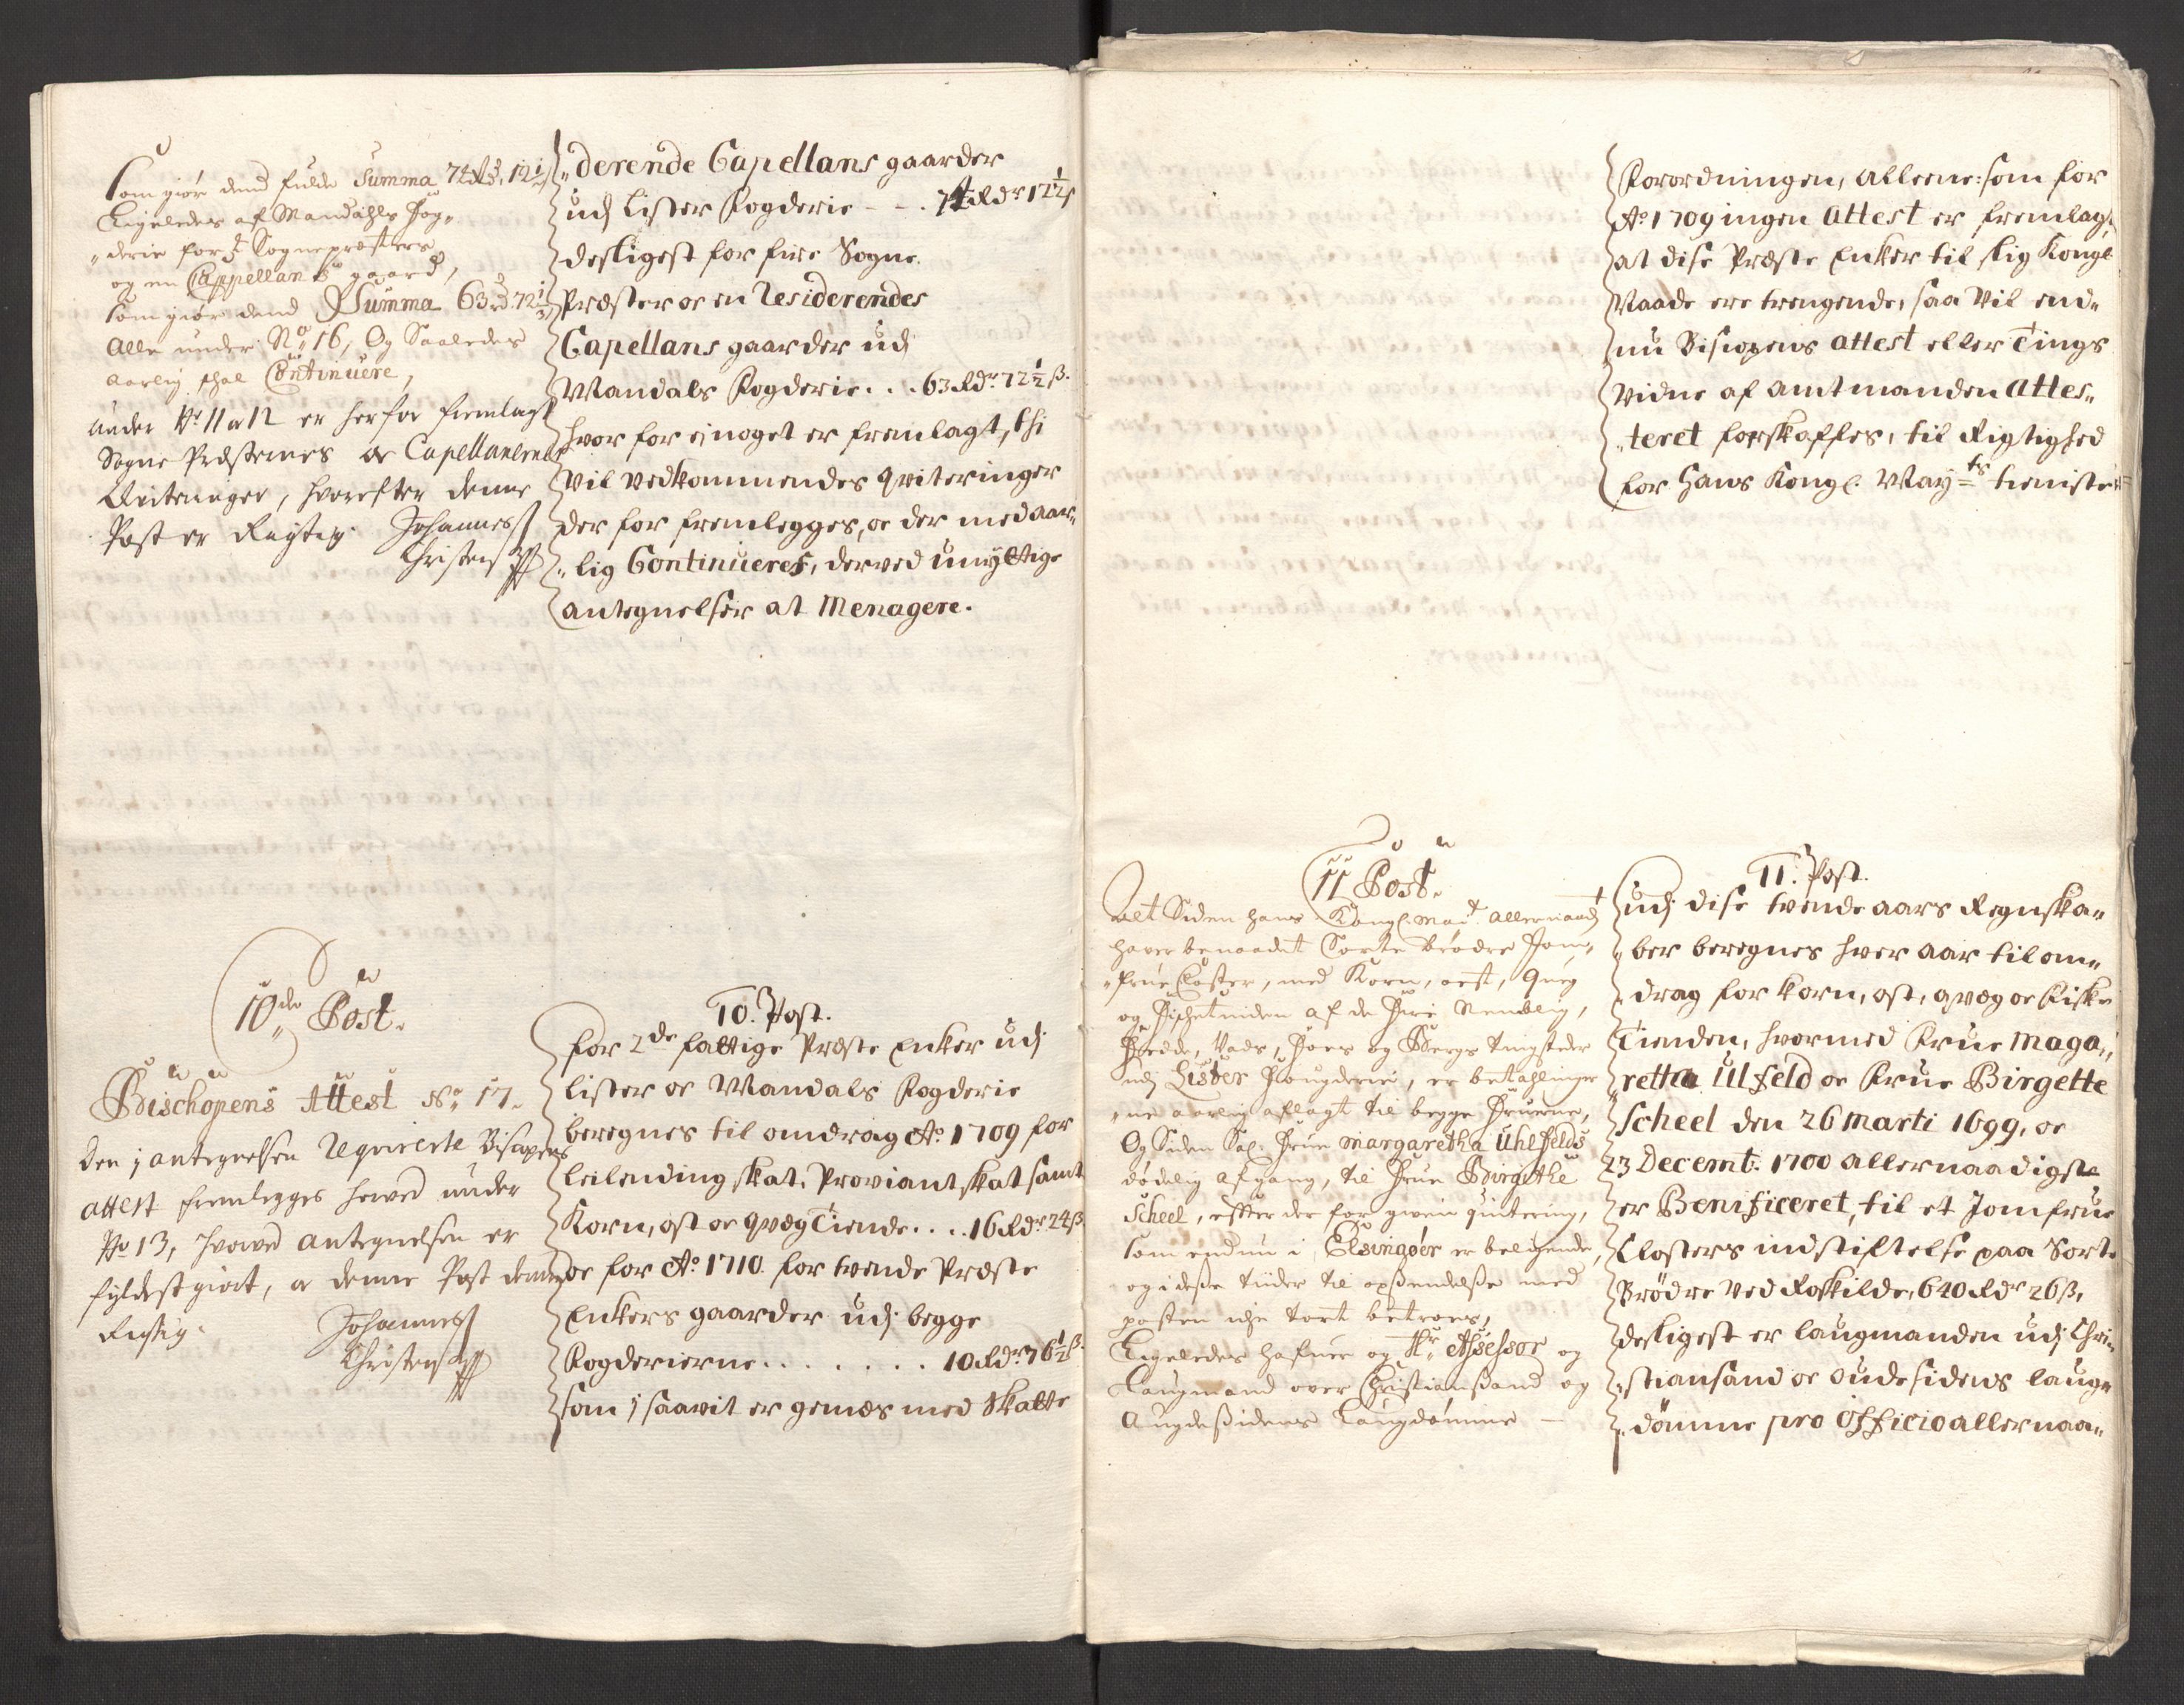 Som giør dend fulde Summa 74 Rd 12½ s
Ligeledes af Mandahls Fog„
„derie for 4 Sognepresters
og en Cappellans gaard,
Som giør dend Summa 63 rd. 72½
Alle under No 16, Og Saaledes
aarlig schal Continuere,
under No 11 a 12 er herfor fremlagt
Sogne Præsternes oc Capellanernes
Qviteringer, hvorefter denne
Post er Rigtig. Johannes
Christens
„derende Capellans gaarder
udj Lister Fogderie - - . 74 Rdr 12½ s
desligest for fire Sogne
Præster oc en Residerendes
Capellans gaarder udj
Mandals Fogderie . . . 63 Rdr 72½ ß.
hvor for ej noget er fremlagt, thi
Vil vedkommendes qviteringer
der for fremlegges, oc der med aar„
„lig Continueres, derved unyttige
antegnelser at Menagere.
10de Post.
Bischopens Attest No 17.
den j antegnelsen Reqvirerte Bisopens
attest fremlegges herved under
No 13, hvorved antegnelsen er
fyldestgiort, oc denne Post
Rigtig. Johannes
Christens
10. Post.
for 2de fattige Præste Enker udj
Lister oc Mandals Fogderie
beregnes til omdrag Ao 1709 for
Leilending skat, Proviant skat samt
Korn, ost oc qvæg Tiende . . . 16 Rdr 24 ß
oc for Ao 1710 for tvende Præste
Enkers gaarder udj begge
Fogderierne . . . . . . . 10 Rdr 76½ ß.
som j saavit er gemæs med Skatte
Forordningen, Alleene: som for
Ao 1709 ingen Attest er fremlagt
at dise Præste Enker til slig Kongl
Naade ere trengende, saa Vil end„
nu Bisopens attest eller Tings
Vidne af amtmanden Attes„
„teret forskaffes, til Rigtighed
for Hans Kongl. Mayts tieniste
11 Post.
Det Siden hans Kongl. Mayt allernaadt
haver benaadet Sorte brødre Jom„
„frue Closter, med Korn, oest, Qveg
og Fischetiiden af de Fire Nemblig,
Hredde, Vads, Hoes og Bergs tingsteder
udj Lister Fougderie, er betahlinge
„ne aarlig aflagt til begge Fruerne,
Og Siden Sal: Frue Margaretha Uhlfelds
dødelig afgang, til Frue Birgethe
Scheel, efter der for given quitering,
som endnu i Elsingøer er beliggende,
og i deße tiider til opsendelse med
posten icke tørt betroes,
Ligeledes hafuer og Hr. Assessor og
Laugmand over Christiansand og
Augdesidens Laugdømme —
11. Post.
udj dise tvende aars Regnska„
„ber beregnes hver aar til om„
„drag for korn, ost, qvæg oc Fiske
Tienden, hvormed Frue Maga„
„retta Ulfeld oc Frue Birgette
Scheel den 26 Marti 1699, oc
23 Decemb: 1700 allernaadigste
er Benificeret, til et Jomfrue
Closters indstiftelse paa Sorte
Brødre Ved Roskilde, 640 Rdr 26 ß,
desligest er laugmanden udj Chri„
„stiansand oc oudesidens laug„
„dømme pro Officio allernaa„